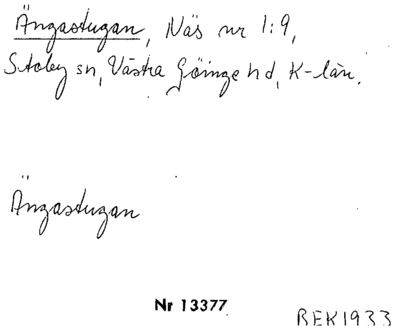 Ängastugan, Näs nr 1:9,
Stoby sn, Västra Göinge hd, K-län.
Ängastugan
Nr 13377
BEK1933